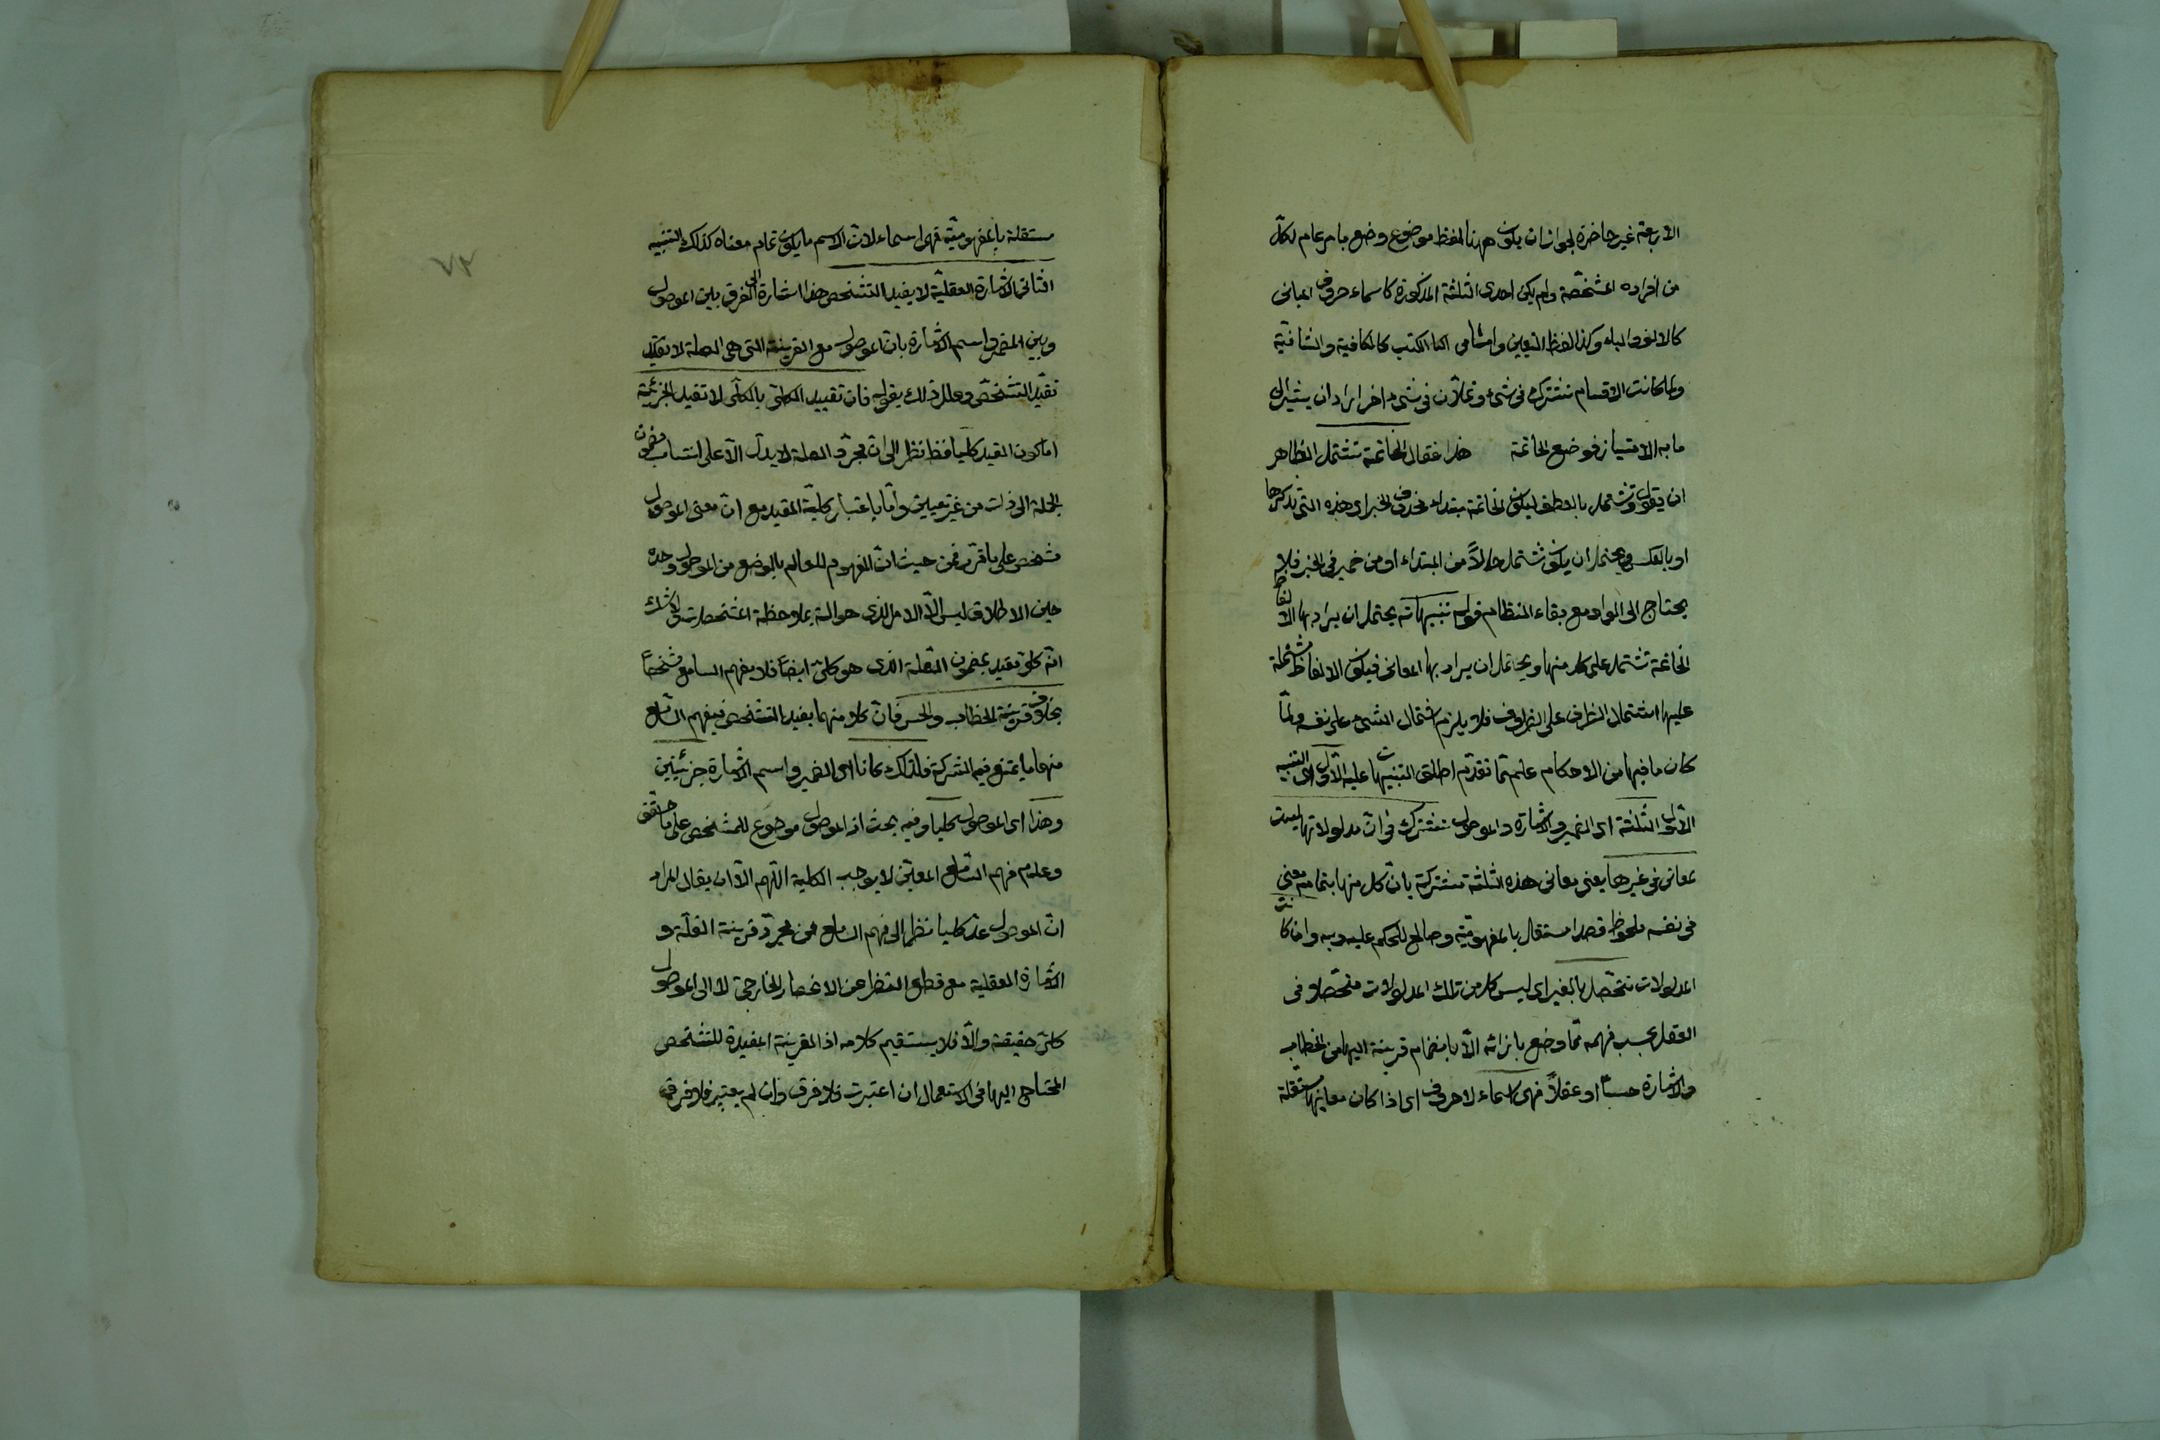 الاربعة غير حاضرة لجواز ان يكون ههنا لفظ موضوع وضع بامر عام لكل
من افراده المشخصة ولم يكن احدى الثلثة المذكورة كاسماء حروف المبانى
كالالف والباء وكذا لفظ التعيين واسامى الكتب كالكافية والشافية
ولما كانت الاقسام تشترك فى شئ وتمتاز فى شئ اخر اراد ان يشير الى
ما به الامتياز فوضع الخاتمة هذا فقال الخاتمة تشتمل الظاهر
ان يقول وتشتمل بالعطف ليكون الخاتمة مبتداء محذوف الخبر اى هذه التى نذكرها
او بالعكس ويحتمل ان يكون تشتمل حالاً من المبتداء او من ضمير فى الخبر فلا
يحتاج الى الواو مع بقاء النظام قوله تنبيهات يحتمل ان يراد بها الالفاظ
الخاتمة تشتمل على كل منها ويحتمل ان يراد بها المعانى فيكون الالفاظ مشتملة
عليها اشتمال الظرف على المظروف فلا يلزم اشتمال الشئ على نفسه ولما
كان ما فيها من الاحكام علم مما تقدم اطلق التنبيهات عليه الاول اى التنبيه
الاول الثلثة اى الضمير والاشارة والموصول تشترك فى ان مدلولاتها ليست
معانى فى غيرها يعنى معانى هذه الثلثة مشتركة بان كل منها بتمامه معنى
فى نفسه ملحوظ قصدا مستقل بالمفهومية وصالح للحكم عليه وبه وان كانت
المدلولات تتحصل بالغير اى ليس كل من تلك المدلولات متحصلا فى
العقل بحسب فهمه مما وضع بازائه الا بانضمام قرينة اليها من الخطاب
والاشارة حسا او عقلاً فهى اسماء لا حروف اى اذا كان معانيها مستقلة
٧٢
مستقلة بالمفهومية فهى اسماء لان الاسم ما يكون تمام معناه كذلك التنبيه
الثانى الاشارة العقلية لا يفيد التشخص هذا اشارة الى الفرق بين الموصول
وبين المضمر واسم الاشارة بان الموصول مع القرينة التى هى الصلة لا تفيد
تقيد التشخص وعلل ذلك بقوله فان تقييد الكلى بالكلى لا تفيد الجزئية
اما كون المقيد كليا فظ نظر الى ان مجرد الصلة لا يدل الا على انتساب مضمون
الجملة الى ذات من غير تعيين واما باعتبار كلية المقيد مع ان معنى الموصول
مشخص على ما قرر فمن حيث ان المفهوم للعالم بالوضع من الموصول وحده
حين الاطلاق ليس الا الامر الذى هو الة بملاحظة المشخصات ولا شك
انه كلى تقييد بمضمون الصلة الذى هو كلى ايضاً فلا يفهم السامع مشخصاً
بخلاف قرينة الخطاب والحس فان كلا منهما يفيد التشخص فيفهم السامع
منهما ما يمتنع فيه الشركة فلذلك كانا اى الضمير واسم الاشارة جزئيين
وهذا اى الموصول كليا وفيه بحث اذ الموصول موضوع للمشخص على ما حقق
وعدم فهم السامع المعين لا يوجب الكلية اللهم الا ان يقال المراد
ان الموصول عد كليا نظرا الى فهم السامع من مجرد قرينة الصلة و
الاشارة العقلية مع قطع النظر عن الانحصار الخارجى لا الى الموصول
كلى حقيقة والا فلا يستقيم كلامه اذ القرينة المفيدة للتشخص
المحتاج اليها فى الاستعمال ان اعتبرت فلا فرق وان لم يعتبر فلا فرق